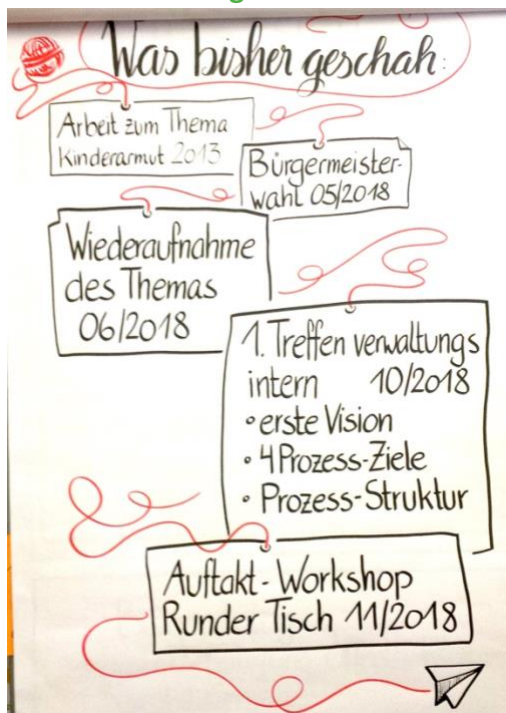 Was bisher geschah:
Arbeit zum Thema
Kinderarmut 2013
Bürgermeister-
wahl 05/2018
Wiederaufnahme
des Themas
06/2018
1. Treffen verwaltungs
intern 10/2018
• erste Vision
• 4 Prozess-Ziele
• Prozess-Struktur
Auftakt-Workshop
Runder Tisch 11/2018